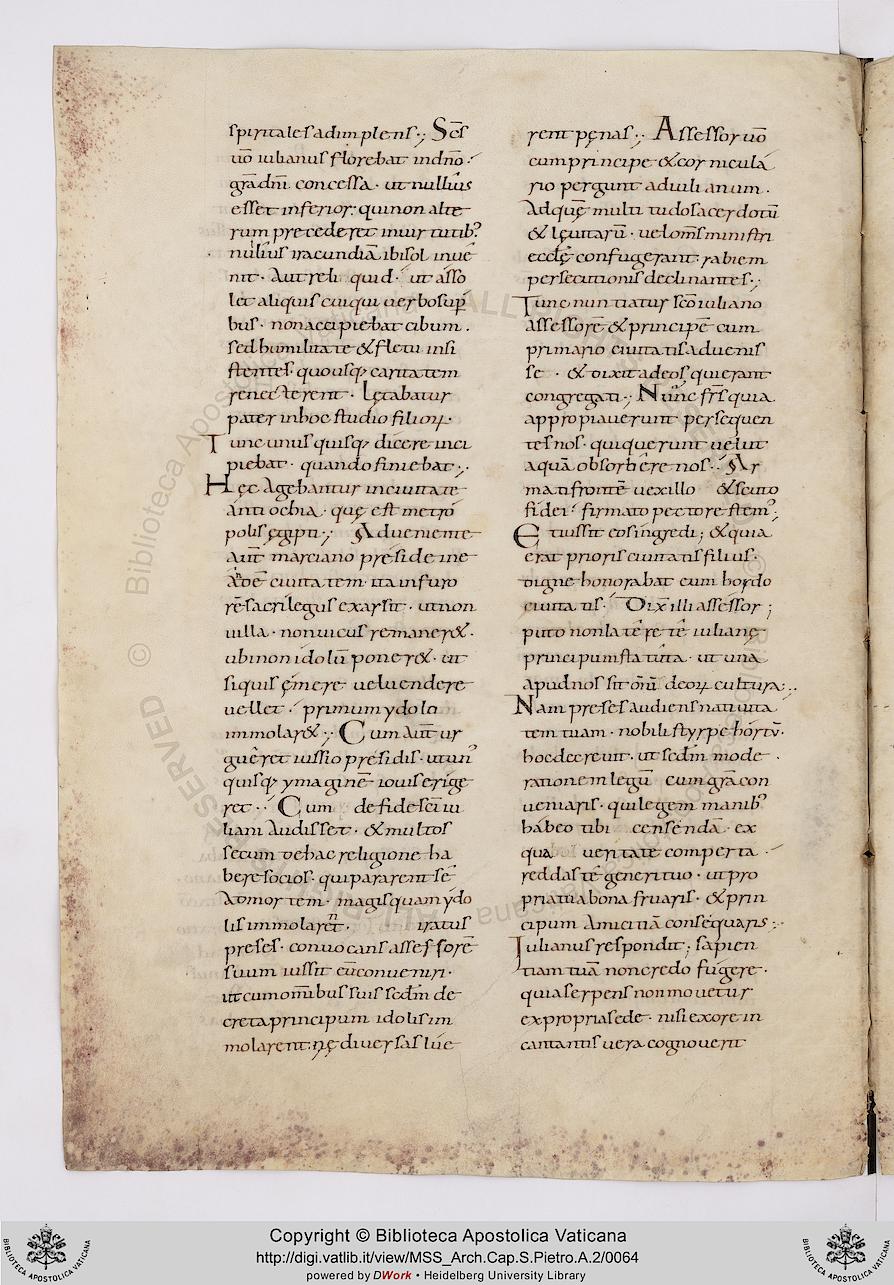 spiritales adimplens·; Scs̄
uō iulianus florebat indn̄o·
gr̄a dn̄i concessa· ut nullius
esset inferior: qui non alte
rum precederet in uirtutib;
nullius iracundiā ibi sol inue
nit· Aut reli quid· ut asso
let aliquis cuiqui uerbo sup̄
bus· non accipiebat cibum·
sed humilitate & fletu insi
stentes· quousq; caritatem
reficeret· Lętabatur
pater in hoc studio filioꝝ·
Tunc unusquisq; dicere inci
piebat· quando finiebat·;
Hęc agebantur in ciuitate
antiochia· quę est metro
polis ęgipti·; Adueniente
aut̄ marciano preside in e
adē ciuitatem· ita in furo
rē sacrilegus exarsit· ut non
uilla· non uicus remaner&·
ubi non idolū poner&· ut
si quis ęmere uel uendere
uellet· primum ydolo
immolar&·; Cum aut̄ ur
guēret iussio presidis· ut un
quisq; ymaginē iouis erige
ret·· Cum de fide sc̄i iu
liani audisset· & multos
secum de hac religione ha
bere socios· qui pararent sē
ad mortem· magis quam ydo
lis immolarent· iratus
preses· conuocans assessorē
suum iussit eū conueniri·
ut cum omnibus suis sedm̄ de
creta principum idolis im
molarent: nę diuersas lue
rent pęnas·; Assessor uō
cum principe & cornicula
rio pergunt ad iulianum·
Ad quę multitudo sacerdotū
& lęuitarū· uel om̄s ministri
eccłę confugerant: rabiem
persecutionis declinantes·;
Tunc nuntiatur sc̄o iuliano
assessorē & principē cum
primario ciuitatis aduenis
se· & dixit ad eos qui erant
congregati·; Nunc fr̄s quia
appropiauerunt persequen
tes nos· qui querunt uelut
aquā obsorbēre nos·· Ar
mati frontē uexillo & scuto
fidei· firmato pectore stem;
Et iussit eos ingredi; & quia
erat prioris ciuitatis filius·
digne honorabat eum hordo
ciuitatis· Dix̄ illi assessor;
puto non latēre tē iulianę
principum statuta· ut una
apud nos sit om̄ū deoꝝ cultura;·
Nam preses audiens natiuita
tem tuam· nobili styrpe hortū·
hoc decreuit· ut sedm̄ mode
rationem legū eum gr̄a con
ueniaris· qui legem manib;
habeo tibi censendā· ex
qua ueritate comperta·
reddas tē generi tuo· ut pro
priatua bona fruaris· & prin
cipum amicitiā consequaris:·
Iulianus respondit; sapien
tiam tuā non credo fugere·
quia serpens non mouetur
ex propria sede· nisi ex ore in
cantantis uera cognouerit
Copyright © Biblioteca Apostolica Vaticana
http://digi.vatlib.it/view/MSS_Arch.Cap.S.Pietro.A.2/0064
powered by DWork • Heidelberg University Library